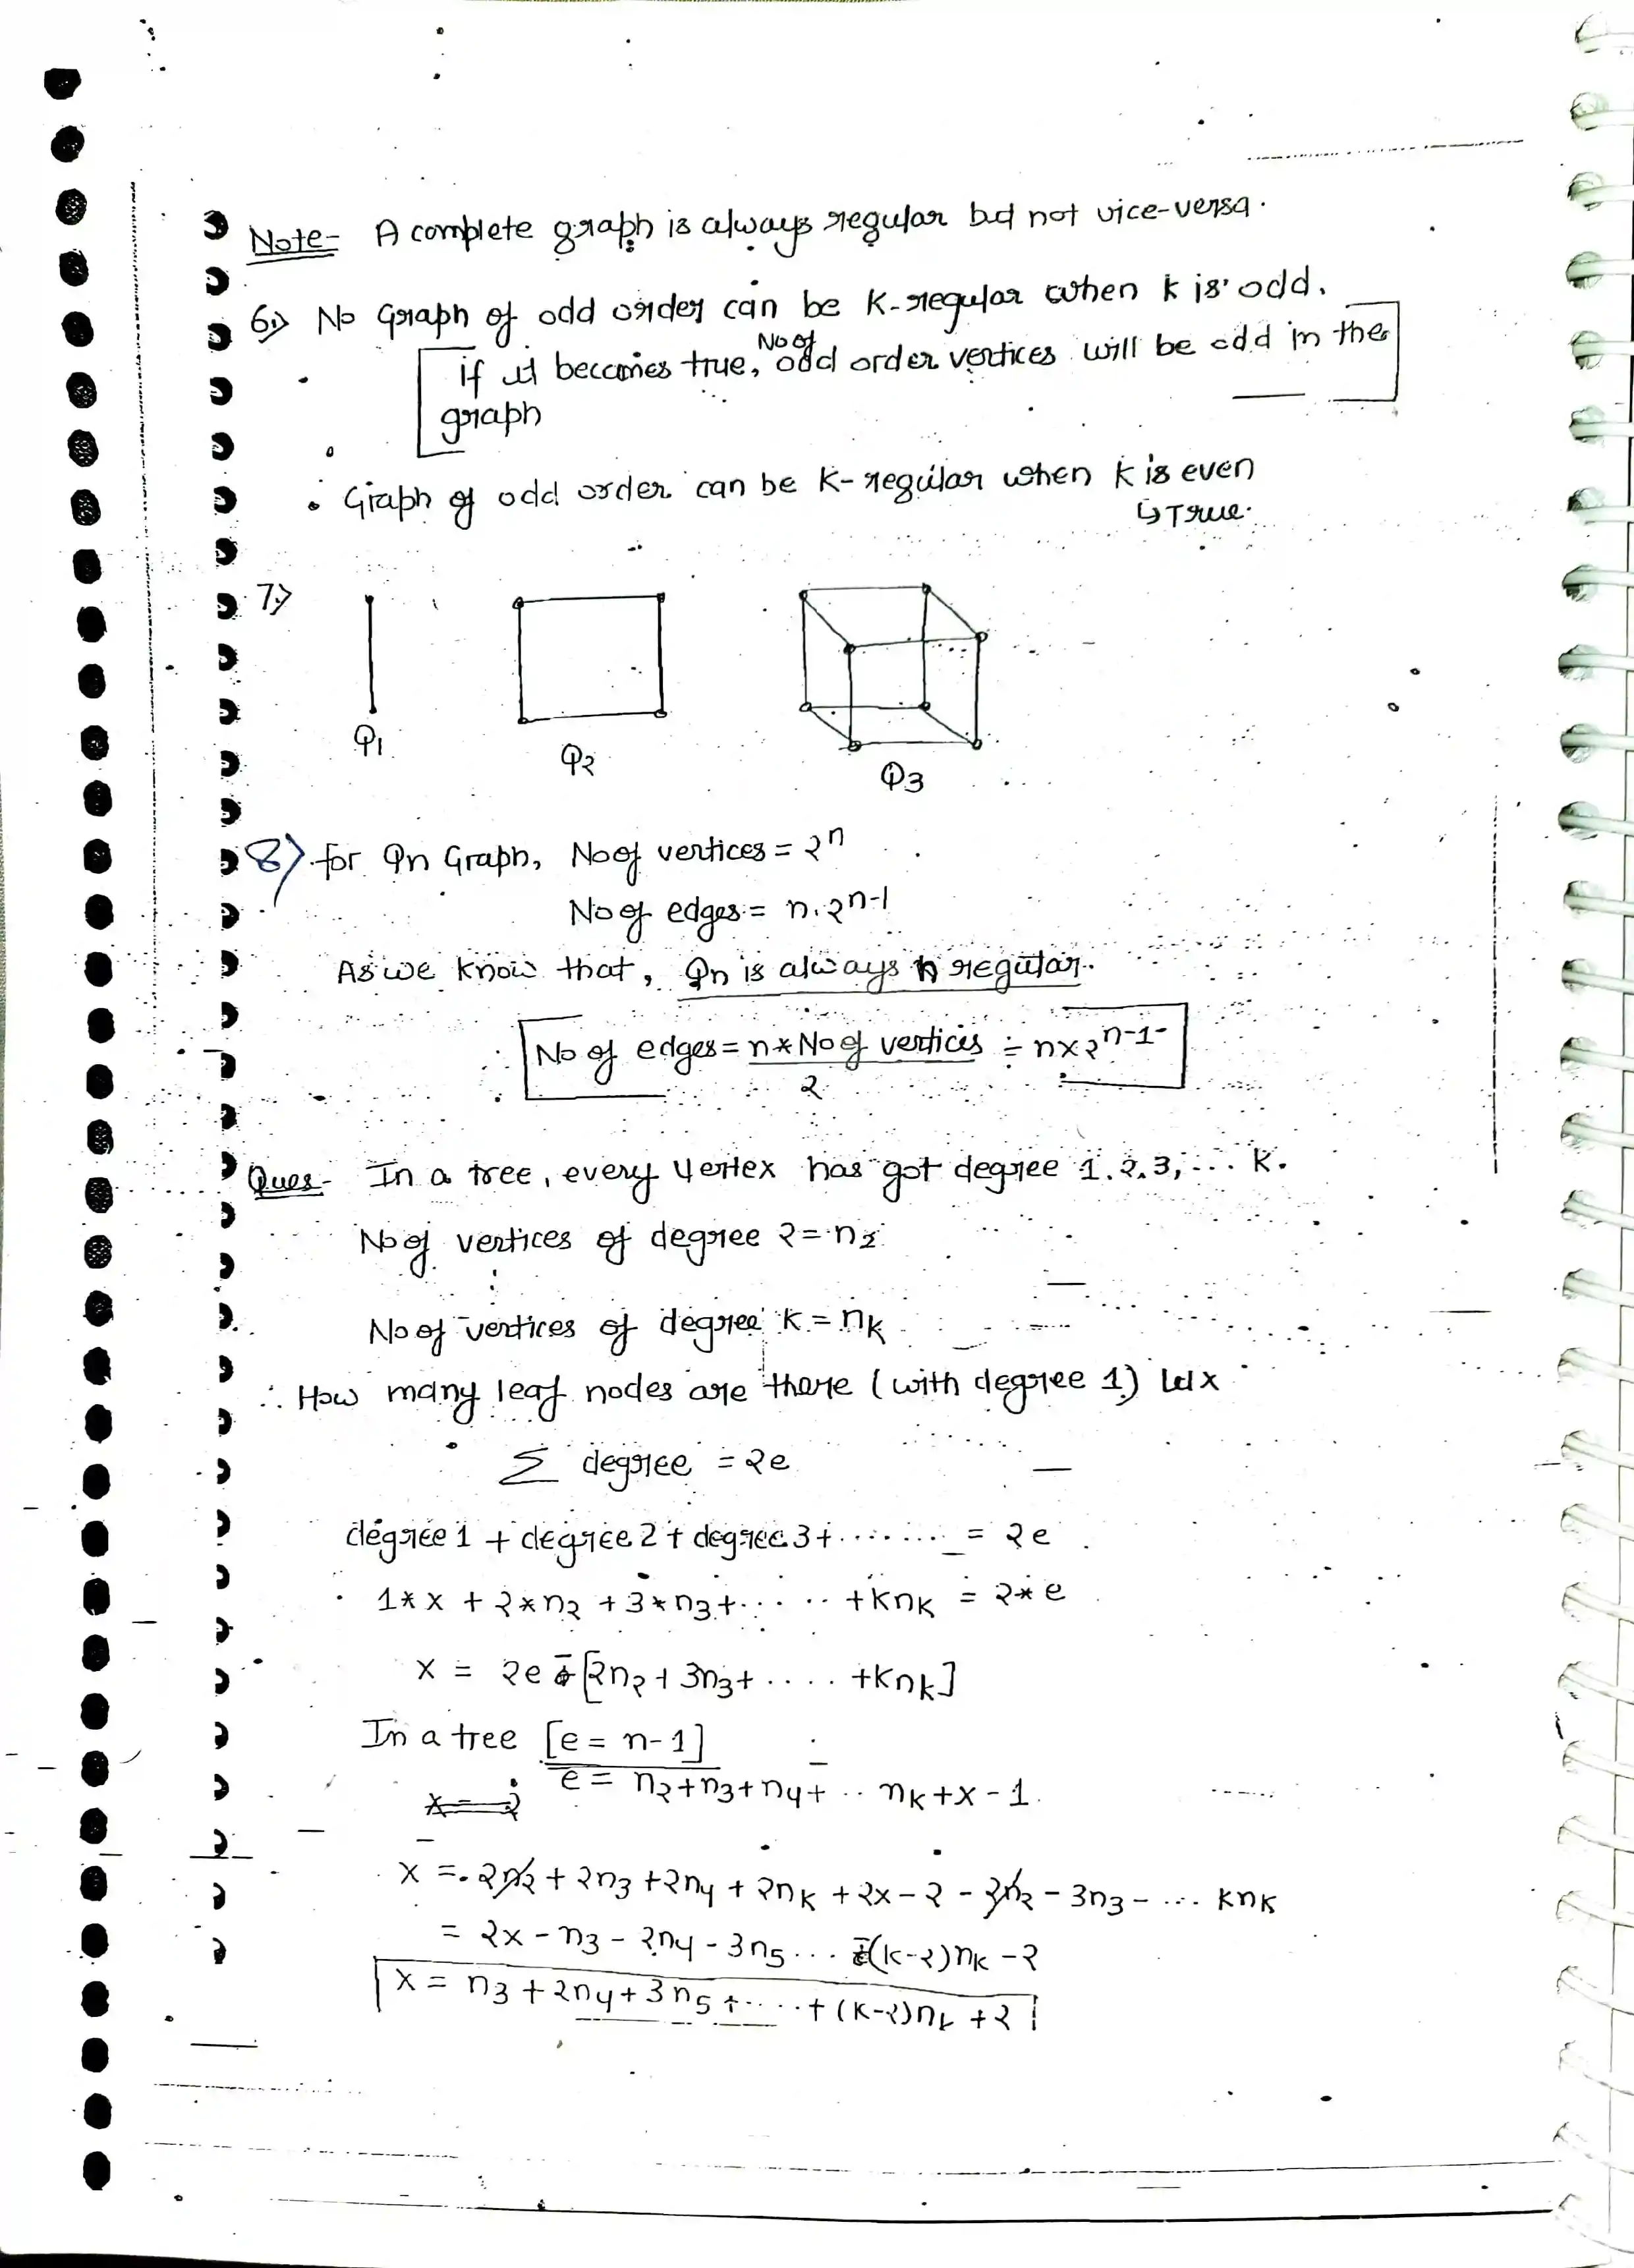 Note- A complete graph is always regular but not vice-versa.
6.> No Graph of odd order can be K-regular when k is odd.
if it becomes true, No of odd order vertices will be odd in the
graph
• Graph of odd order can be K-regular when k is even
↳ True.
7.>
Q1 Q2 Q3
8> for Qn Graph, No of vertices = 2^n
No of edges = n.2^n-1
As we know that, Qn is always n regular.
No of edges = n*No of vertices/2 = n×2^n-1
Ques- In a tree, every vertex has got degree 1.2.3,... K.
No of vertices of degree 2 = n2
No of vertices of degree k = nk
∴ How many leaf nodes are there (with degree 1) let x
Σ degree = 2e
degree 1 + degree 2 + degree 3 + ........ = 2e
1*x + 2*n2 + 3*n3 + ..... + knk = 2*e
x = 2e - [2n2 + 3n3 + .... + knk]
In a tree [e = n-1]
e = n2+n3+n4+ .. nk+x-1.
x = 2n2 + 2n3 + 2n4 + 2nk + 2x - 2 - 2n2 - 3n3 - ... knk
= 2x - n3 - 2n4 - 3n5 ... -(k-2)nk - 2
x = n3 + 2n4 + 3n5 + ..... + (k-2)nk + 2